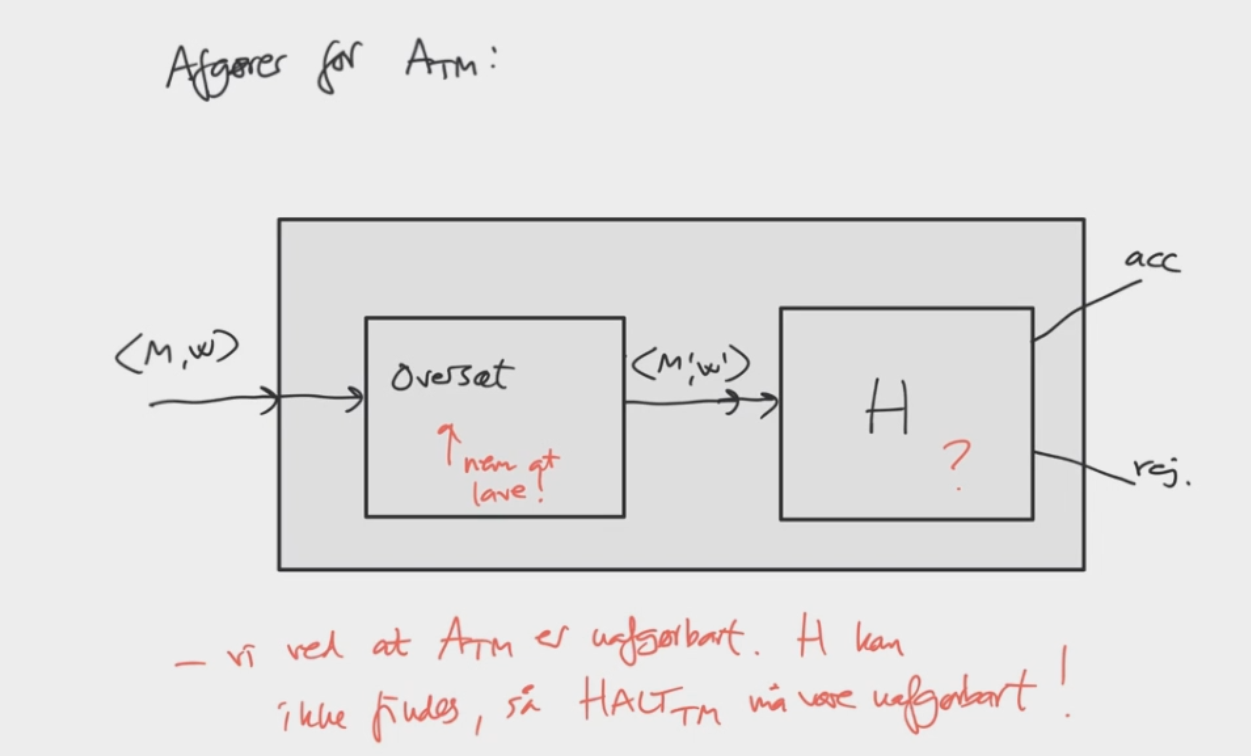 Afgører for A_TM:
acc
<M,w>
Oversæt
<M',w'>
H
nem at
lave!
?
rej.
– vi ved at A_TM er uafgørbart. H kan
ikke findes, så HALT_TM må være uafgørbart!